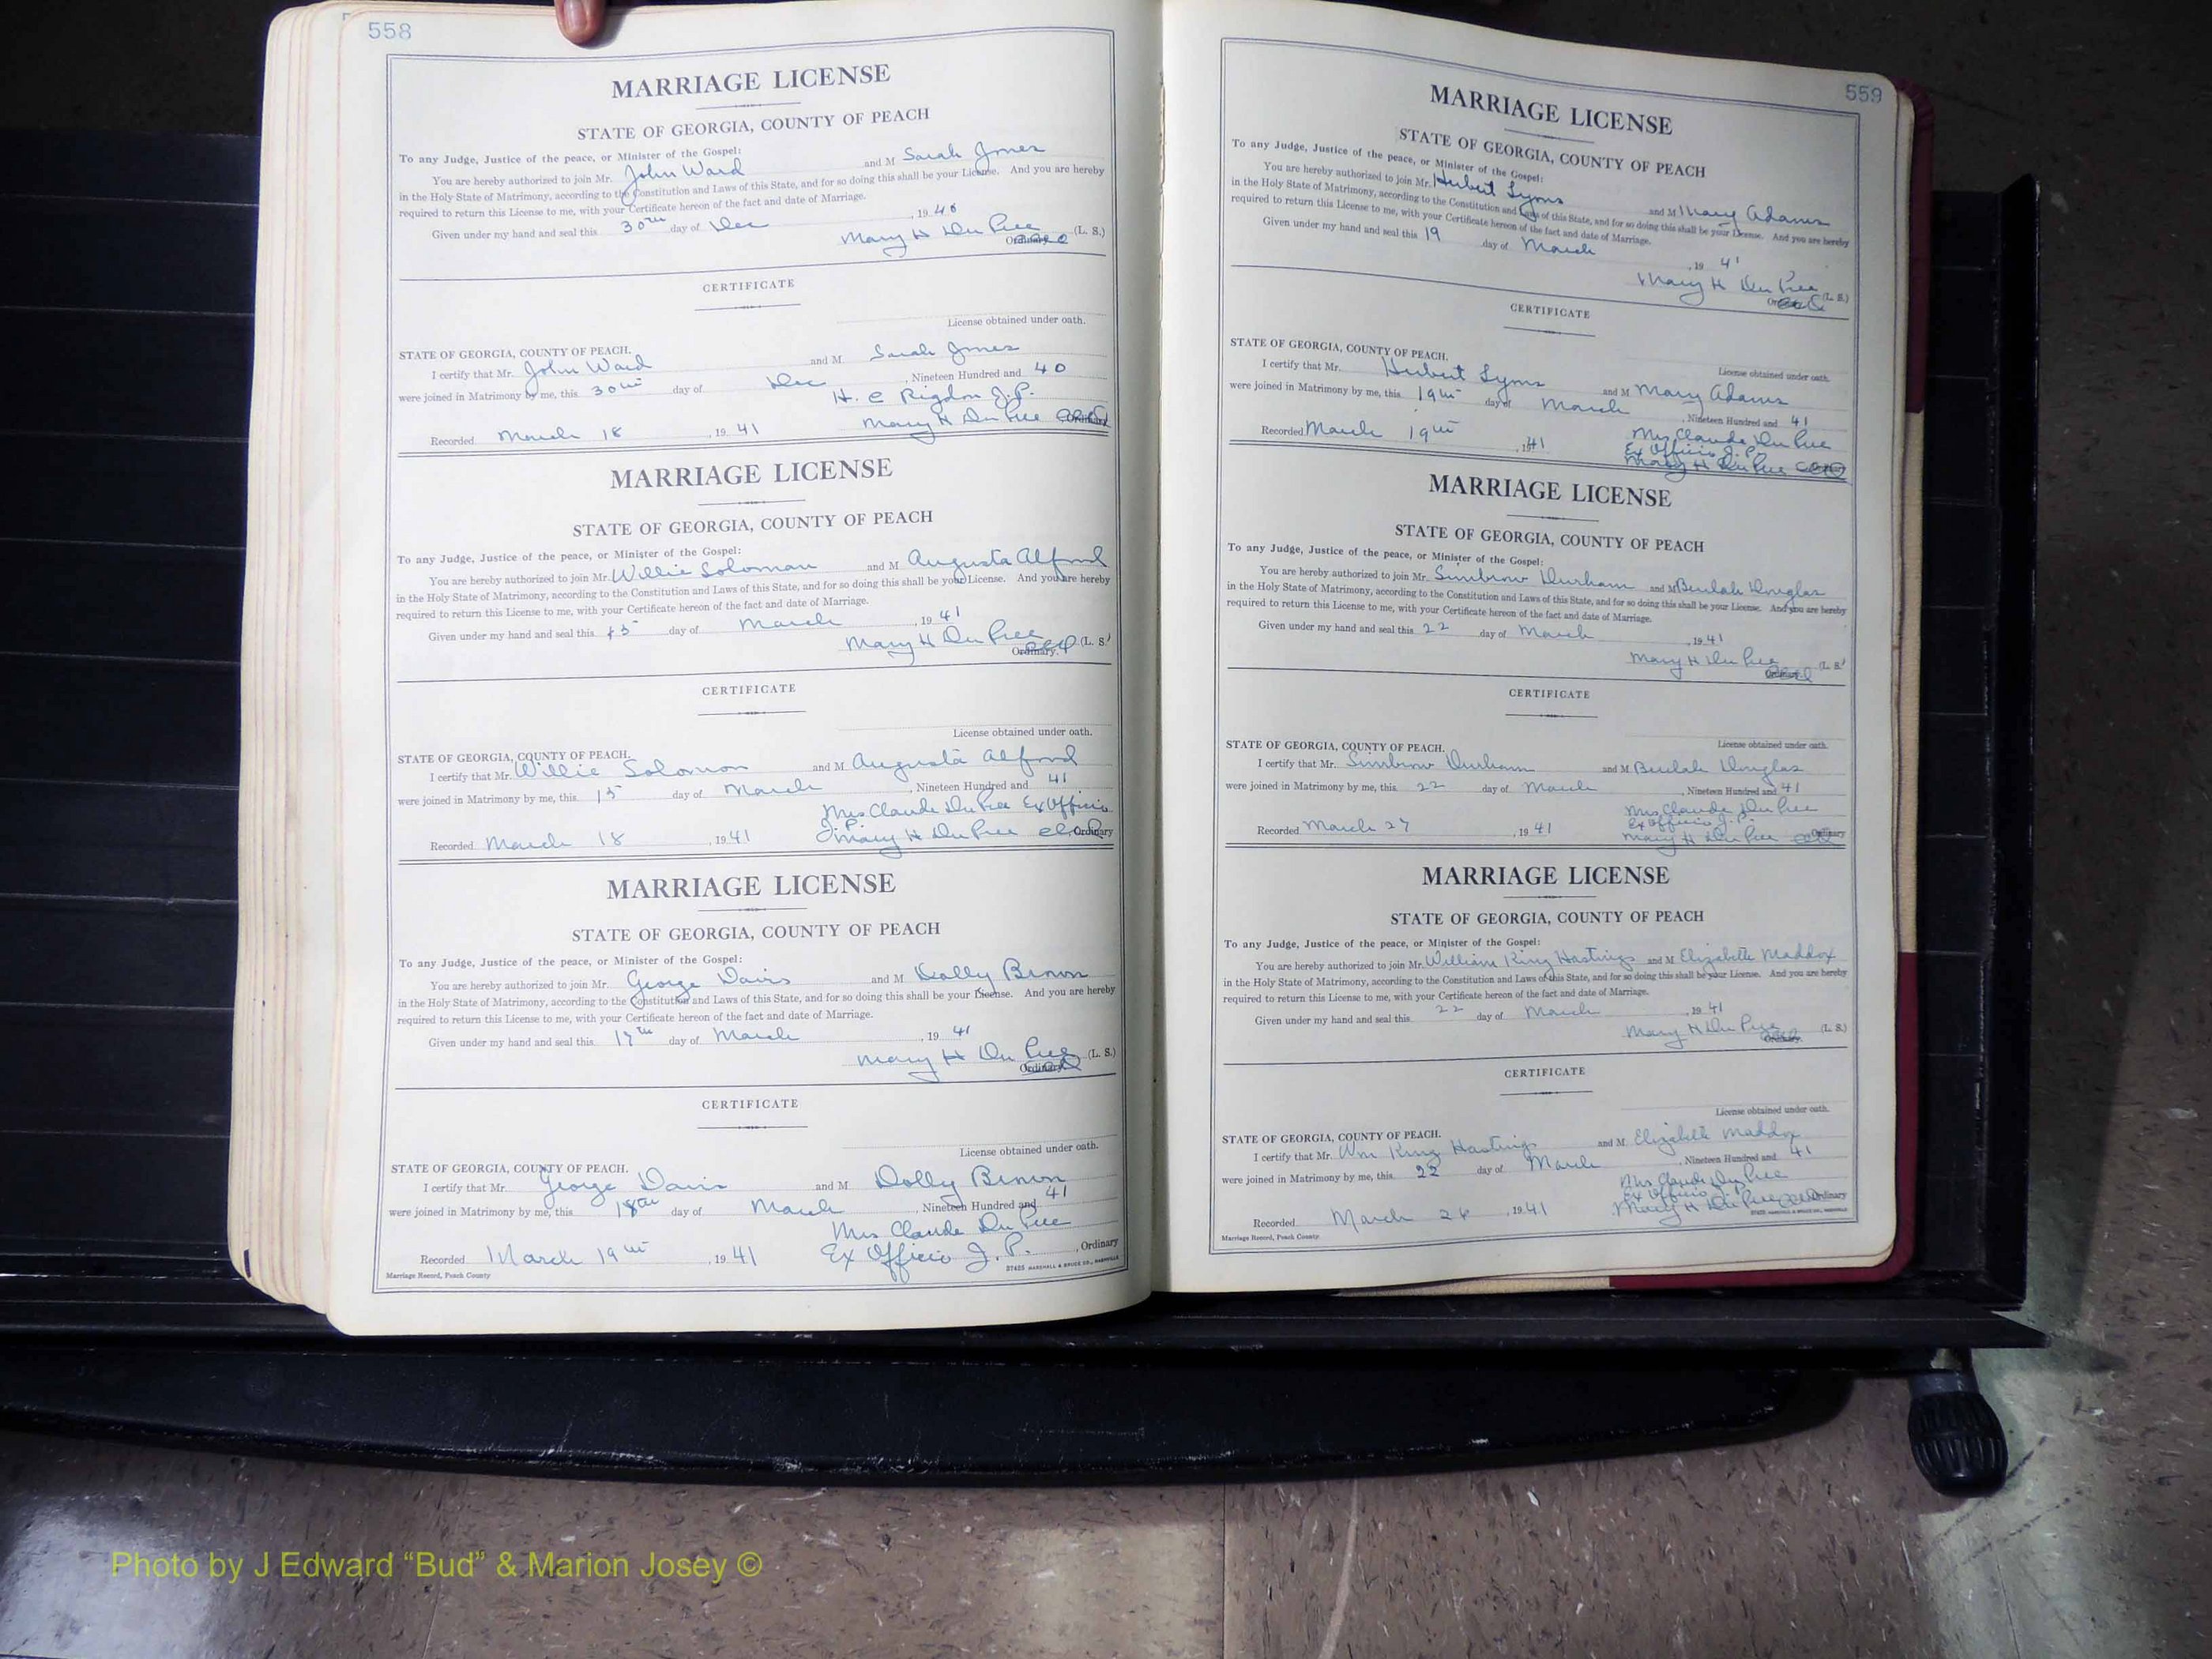 558
MARRIAGE LICENSE
STATE OF GEORGIA, COUNTY OF PEACH
To any Judge, Justice of the peace, or Minister of the Gospel:
You are hereby authorized to join Mr. John Ward and M Sarah Jones
in the Holy State of Matrimony, according to the Constitution and Laws of this State, and for so doing this shall be your License. And you are hereby
required to return this License to me, with your Certificate hereon of the fact and date of Marriage.
Given under my hand and seal this 30th day of Dec , 1940
Mary H Du Pree (L. S.)
Ordinary
CERTIFICATE
License obtained under oath.
STATE OF GEORGIA, COUNTY OF PEACH.
I certify that Mr. John Ward and M Sarah Jones
were joined in Matrimony by me, this 30th day of Dec , Nineteen Hundred and 40
H. E Rigdon J.P.
Recorded March 18 , 1941 Mary H Du Pree
MARRIAGE LICENSE
STATE OF GEORGIA, COUNTY OF PEACH
To any Judge, Justice of the peace, or Minister of the Gospel:
You are hereby authorized to join Mr. Willie Soloman and M Augusta Alford
in the Holy State of Matrimony, according to the Constitution and Laws of this State, and for so doing this shall be your License. And you are hereby
required to return this License to me, with your Certificate hereon of the fact and date of Marriage.
Given under my hand and seal this 15 day of March , 1941
Mary H Du Pree (L. S.)
Ordinary.
CERTIFICATE
License obtained under oath.
STATE OF GEORGIA, COUNTY OF PEACH.
I certify that Mr. Willie Solomon and M Augusta Alford
were joined in Matrimony by me, this 15 day of March , Nineteen Hundred and 41
Mrs Claude Du Pree Ex Officio
J.P.
Recorded March 18 , 1941 Mary H Du Pree Ordinary
MARRIAGE LICENSE
STATE OF GEORGIA, COUNTY OF PEACH
To any Judge, Justice of the peace, or Minister of the Gospel:
You are hereby authorized to join Mr. George Davis and M Dolly Brown
in the Holy State of Matrimony, according to the Constitution and Laws of this State, and for so doing this shall be your License. And you are hereby
required to return this License to me, with your Certificate hereon of the fact and date of Marriage.
Given under my hand and seal this 17th day of March , 1941
Mary H Du Pree (L. S.)
Ordinary
CERTIFICATE
License obtained under oath.
STATE OF GEORGIA, COUNTY OF PEACH.
I certify that Mr. George Davis and M Dolly Brown
were joined in Matrimony by me, this 18th day of March , Nineteen Hundred and 41
Mrs Claude Du Pree
Recorded March 19th , 1941 Ex Officio J. P. , Ordinary
Marriage Record, Peach County 37425 MARSHALL & BRUCE CO., NASHVILLE
559
MARRIAGE LICENSE
STATE OF GEORGIA, COUNTY OF PEACH
To any Judge, Justice of the peace, or Minister of the Gospel:
You are hereby authorized to join Mr. Herbert Lyons and M Mary Adams
in the Holy State of Matrimony, according to the Constitution and Laws of this State, and for so doing this shall be your License. And you are hereby
required to return this License to me, with your Certificate hereon of the fact and date of Marriage.
Given under my hand and seal this 19 day of March , 19 41
Mary H Du Pree (L. S.)
CERTIFICATE
License obtained under oath.
STATE OF GEORGIA, COUNTY OF PEACH.
I certify that Mr. Herbert Lyons and M Mary Adams
were joined in Matrimony by me, this 19th day of March , Nineteen Hundred and 41
Mrs Claude Du Pree
Ex Officio J. P.
Recorded March 19th , 1941 Mary H Du Pree
MARRIAGE LICENSE
STATE OF GEORGIA, COUNTY OF PEACH
To any Judge, Justice of the peace, or Minister of the Gospel:
You are hereby authorized to join Mr. Durham and M Beulah Douglas
in the Holy State of Matrimony, according to the Constitution and Laws of this State, and for so doing this shall be your License. And you are hereby
required to return this License to me, with your Certificate hereon of the fact and date of Marriage.
Given under my hand and seal this 22 day of March , 1941
Mary H Du Pree (L. S.)
CERTIFICATE
License obtained under oath.
STATE OF GEORGIA, COUNTY OF PEACH.
I certify that Mr. Durham and M Beulah Douglas
were joined in Matrimony by me, this 22 day of March , Nineteen Hundred and 41
Mrs Claude Du Pree
Ex Officio J. P.
Recorded March 27 , 1941 Mary H Du Pree Ordinary
MARRIAGE LICENSE
STATE OF GEORGIA, COUNTY OF PEACH
To any Judge, Justice of the peace, or Minister of the Gospel:
You are hereby authorized to join Mr. William King Hastings and M Elizabeth Maddox
in the Holy State of Matrimony, according to the Constitution and Laws of this State, and for so doing this shall be your License. And you are hereby
required to return this License to me, with your Certificate hereon of the fact and date of Marriage.
Given under my hand and seal this 22 day of March , 1941
Mary H Du Pree (L. S.)
Ordinary.
CERTIFICATE
License obtained under oath.
STATE OF GEORGIA, COUNTY OF PEACH.
I certify that Mr. Wm King Hastings and M Elizabeth Maddox
were joined in Matrimony by me, this 22 day of March , Nineteen Hundred and 41
Mrs Claude Du Pree
Ex Officio J. P.
Recorded March , 1941 Mary H Du Pree Ordinary
Marriage Record, Peach County 37425 MARSHALL & BRUCE CO., NASHVILLE
Photo by J Edward “Bud” & Marion Josey ©